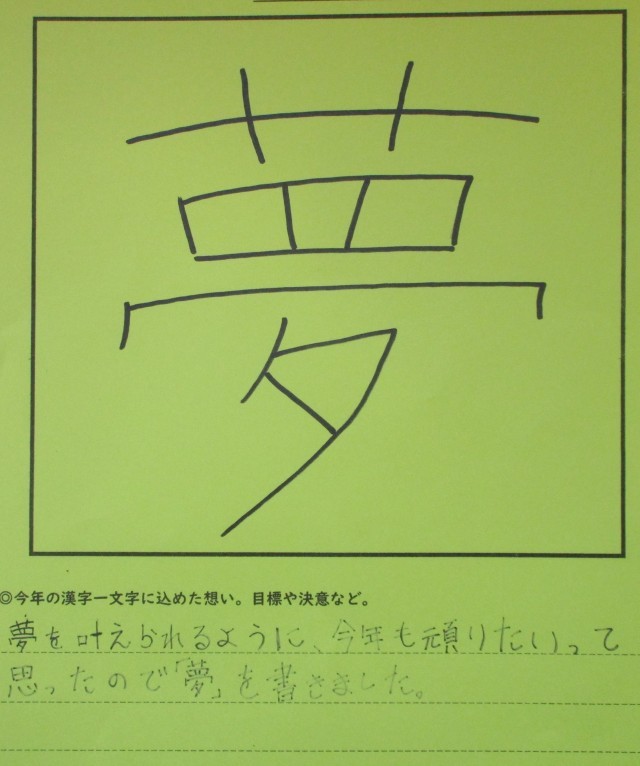 夢
◎今年の漢字一文字に込めた想い。目標や決意など。
夢を叶えられるように、今年も頑りたいって
思ったので「夢」を書きました。